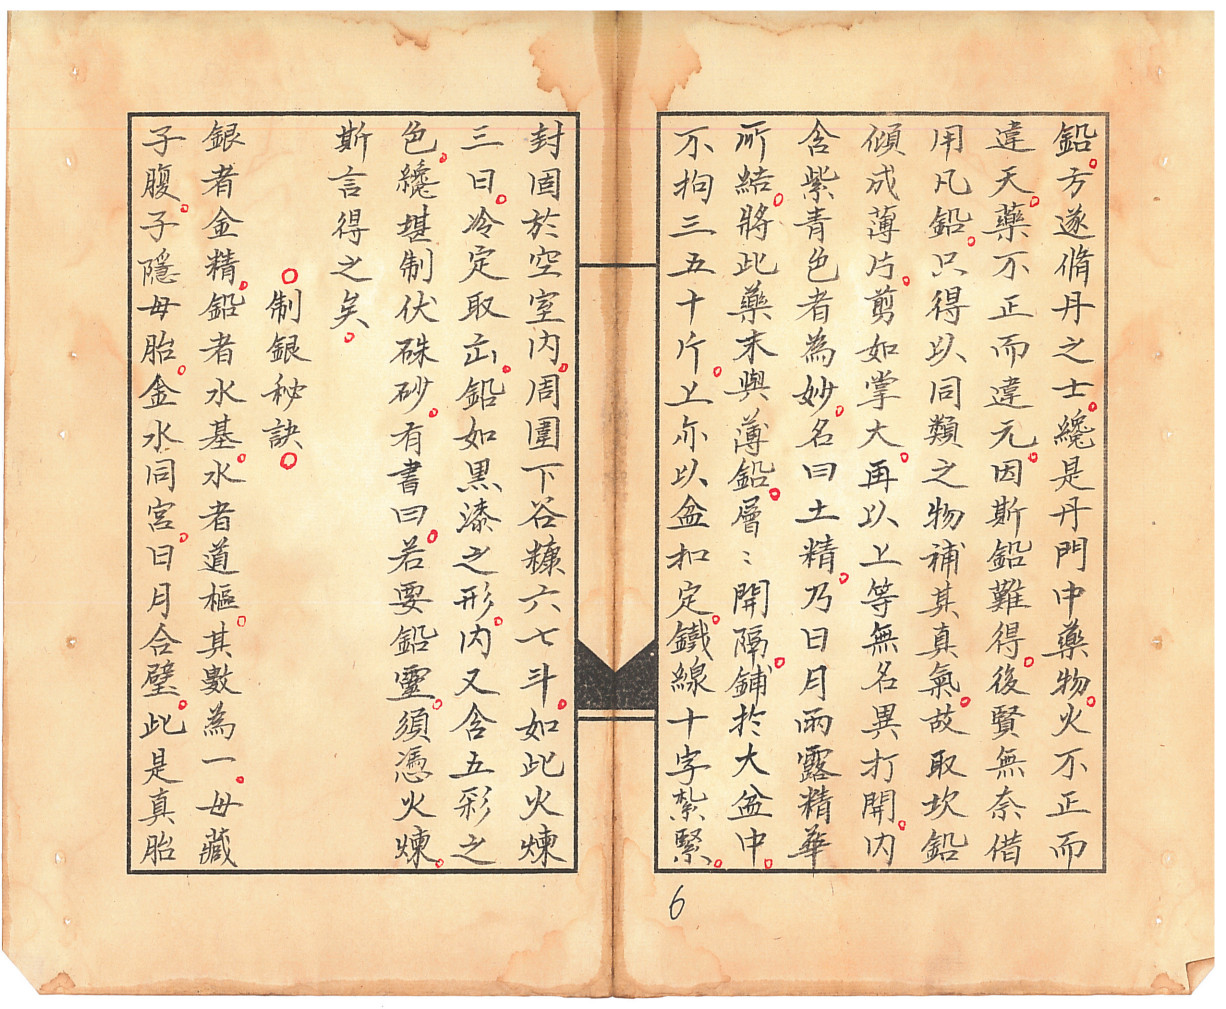 鉛。方遂脩丹之士。纔是丹門中藥物。火不正而
違天。藥不正而違元。因斯鉛難得。後賢無奈借
用凡鉛。只得以同類之物補其真氣。故取坎鉛
傾成薄片。剪如掌大。再以上等無名異打開。内
含紫青色者為妙。名曰土精。乃日月雨露精華
所結。將此藥末與薄鉛。層〻開隔。鋪於大盆中。
不拘三五十斤。上亦以盆扣定。鐵線十字紮緊。
封固於空室内。周圍下谷糠六七斗。如此火煉
三日。冷定取出。鉛如黑漆之形。内又含五彩之
色。纔堪制伏硃砂。有書曰。若要鉛靈。須憑火煉。
斯言得之矣。
○制銀秘訣○
銀者金精。鉛者水基。水者道樞。其數為一。母藏
子腹。子隱母胎。金水同宮。日月合璧。此是真胎
6